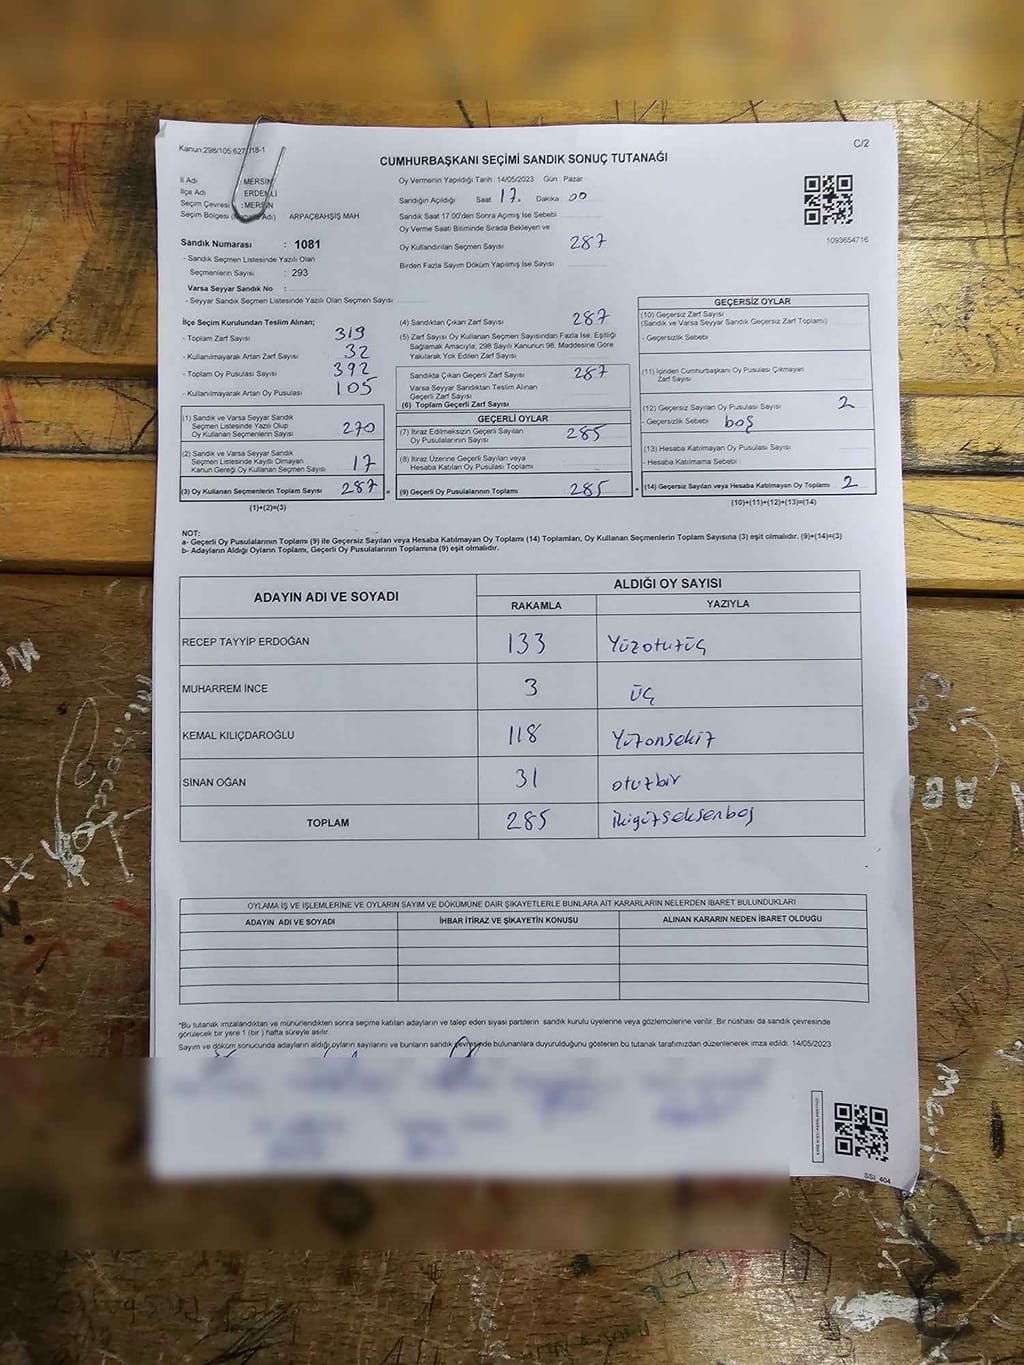 Kanun:298/105;627,/18-1
C/2
CUMHURBAŞKANI SEÇİMİ SANDIK SONUÇ TUTANAĞI
İl Adı : MERSİN
İlçe Adı ERDEMLİ
Seçim Çevresi : MERSİN
Seçim Bölgesi ( Adı) ARPAÇBAHŞİŞ MAH
Sandık Numarası : 1081
- Sandık Seçmen Listesinde Yazılı Olan
Seçmenlerin Sayısı : 293
Varsa Seyyar Sandık No :
- Seyyar Sandık Seçmen Listesinde Yazılı Olan Seçmen Sayısı
Oy Vermenin Yapıldığı Tarih :14/05/2023 Gün : Pazar
Sandığın Açıldığı Saat 17. Dakika 00
Sandık Saat 17.00'den Sonra Açmış İse Sebebi
Oy Verme Saati Bitiminde Sırada Bekleyen ve
Oy Kullandırılan Seçmen Sayısı 287
Birden Fazla Sayım Döküm Yapılmış İse Sayısı
1093654716
İlçe Seçim Kurulundan Teslim Alınan;
- Toplam Zarf Sayısı 319
- Kullanılmayarak Artan Zarf Sayısı 32
- Toplam Oy Pusulası Sayısı 392
- Kullanılmayarak Artan Oy Pusulası 105
(1) Sandık ve Varsa Seyyar Sandık
Seçmen Listesinde Yazılı Olup
Oy Kullanan Seçmenlerin Sayısı 270
(2) Sandık ve Varsa Seyyar Sandık
Seçmen Listesinde Kayıtlı Olmayan
Kanun Gereği Oy Kullanan Seçmen Sayısı 17
(3) Oy Kullanan Seçmenlerin Toplam Sayısı 287 =
(1)+(2)=(3)
(4) Sandıktan Çıkan Zarf Sayısı 287
(5) Zarf Sayısı Oy Kullanan Seçmen Sayısından Fazla İse, Eşitliği
Sağlamak Amacıyla; 298 Sayılı Kanunun 98. Maddesine Göre
Yakılarak Yok Edilen Zarf Sayısı
Sandıkta Çıkan Geçerli Zarf Sayısı 287
Varsa Seyyar Sandıktan Teslim Alınan
Geçerli Zarf Sayısı
(6) Toplam Geçerli Zarf Sayısı
GEÇERLİ OYLAR
(7) İtiraz Edilmeksizin Geçerli Sayılan
Oy Pusulalarının Sayısı 285
(8) İtiraz Üzerine Geçerli Sayılan veya
Hesaba Katılan Oy Pusulası Toplamı
(9) Geçerli Oy Pusulalarının Toplamı 285
GEÇERSİZ OYLAR
(10) Geçersiz Zarf Sayısı
(Sandık ve Varsa Seyyar Sandık Geçersiz Zarf Toplamı)
- Geçersizlik Sebebi
(11) İçinden Cumhurbaşkanı Oy Pusulası Çıkmayan
Zarf Sayısı
(12) Geçersiz Sayılan Oy Pusulası Sayısı 2
- Geçersizlik Sebebi boş
(13) Hesaba Katılmayan Oy Pusulası Sayısı
- Hesaba Katılmama Sebebi
(14) Geçersiz Sayılan veya Hesaba Katılmayan Oy Toplamı 2
(10)+(11)+(12)+(13)=(14)
NOT:
a- Geçerli Oy Pusulalarının Toplamı (9) ile Geçersiz Sayılan veya Hesaba Katılmayan Oy Toplamı (14) Toplamları, Oy Kullanan Seçmenlerin Toplam Sayısına (3) eşit olmalıdır. (9)+(14)=(3)
b- Adayların Aldığı Oyların Toplamı, Geçerli Oy Pusulalarının Toplamına (9) eşit olmalıdır.
ADAYIN ADI VE SOYADI ALDIĞI OY SAYISI
RAKAMLA YAZIYLA
RECEP TAYYİP ERDOĞAN 133 Yüzotuzüç
MUHARREM İNCE 3 üç
KEMAL KILIÇDAROĞLU 118 Yüzonsekiz
SİNAN OĞAN 31 otuzbir
TOPLAM 285 ikiyüzseksenbeş
OYLAMA İŞ VE İŞLEMLERİNE VE OYLARIN SAYIM VE DÖKÜMÜNE DAİR ŞİKAYETLERLE BUNLARA AİT KARARLARIN NELERDEN İBARET BULUNDUKLARI
ADAYIN ADI VE SOYADI İHBAR İTİRAZ VE ŞİKAYETİN KONUSU ALINAN KARARIN NEDEN İBARET OLDUĞU
*Bu tutanak imzalandıktan ve mühürlendikten sonra seçime katılan adayların ve talep eden siyasi partilerin sandık kurulu üyelerine veya gözlemcilerine verilir. Bir nüshası da sandık çevresinde
görülecek bir yere 1 (bir ) hafta süreyle asılır.
Sayım ve döküm sonucunda adayların aldığı oyların sayılarını ve bunların sandık çevresinde bulunanlara duyurulduğunu gösteren bu tutanak tarafımızdan düzenlenerek imza edildi. 14/05/2023
SSI_404